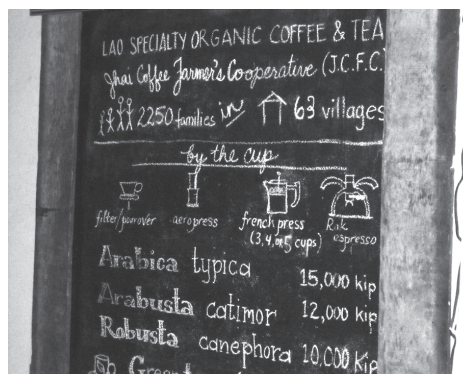 LAO SPECIALTY ORGANIC COFFEE & TEA
Jhai Coffee Farmer's Cooperative (J.C.F.C.)
2250 families in 63 villages
by the cup
filter/pourover aeropress french press Rok espresso
(3,4,or 5 cups)
Arabica typica 15,000 kip
Arabusta catimor 12,000 kip
Robusta canephora 10,000 Kip
Green